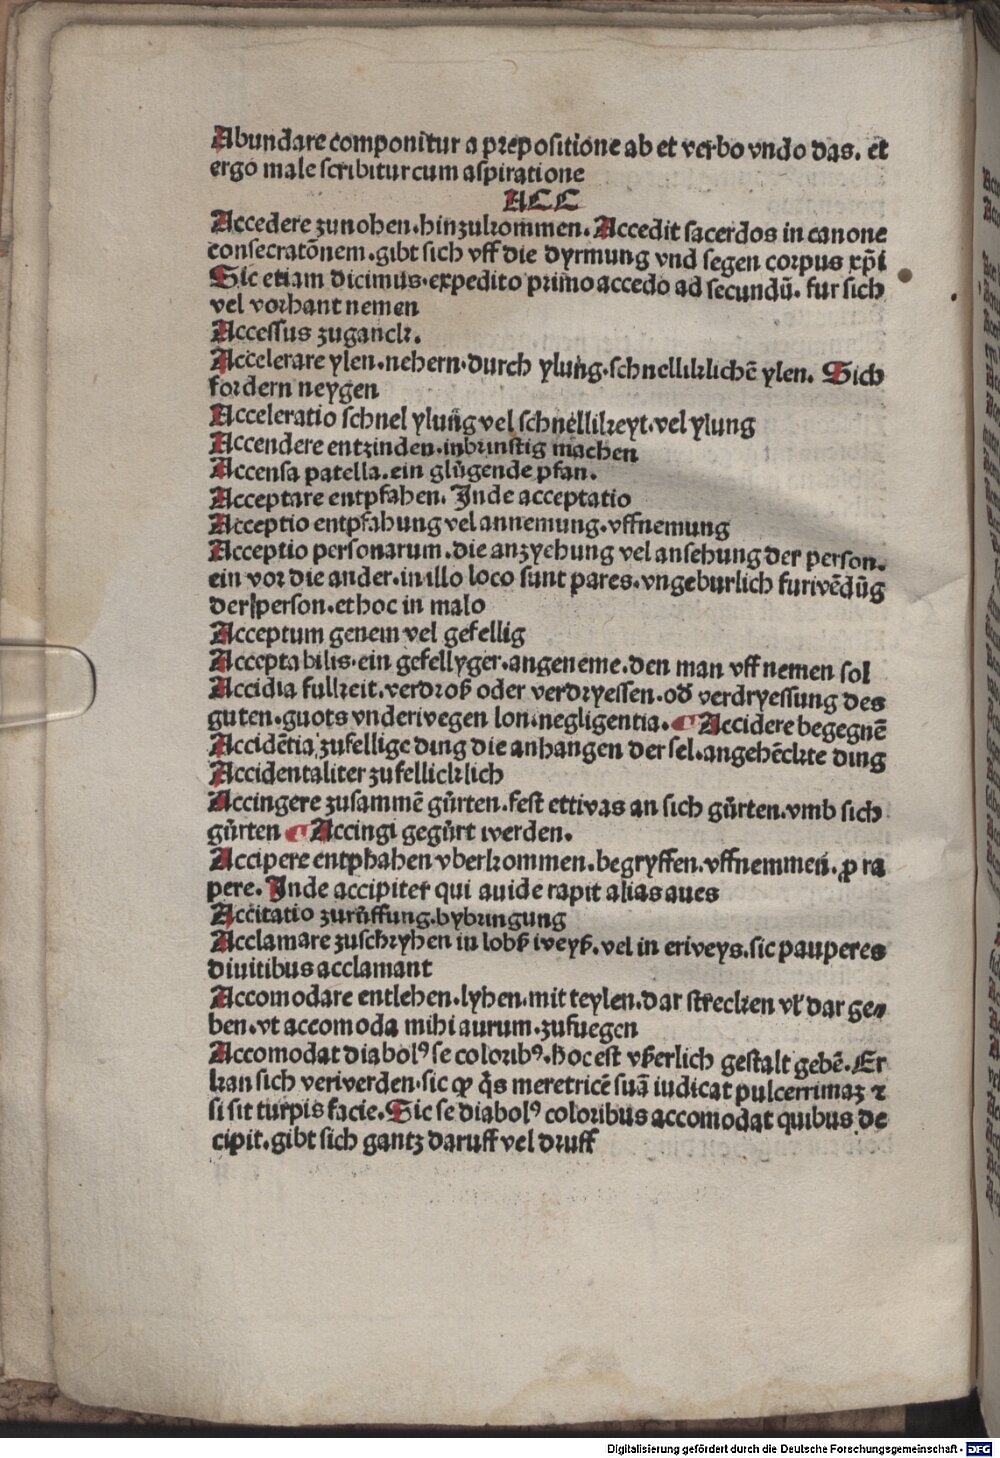 Abundare componitur a prepositione ab et verbo vndo das. et
ergo male scribitur cum aspiratione
ACC
Accedere zunohen. hinzukommen. Accedit sacerdos in canone
consecratōnem. gibt sich vff die dyrmung vnd segen corpus xp̄i
Sic etiam dicimus. expedito primo accedo ad secundū. fur sich
vel vorhant nemen
Accessus zuganck.
Accelerare ylen. nehern. durch ylung. schnelliklichē ylen. Sich
fordern neygen
Acceleratio schnel ylung vel schnellikeyt. vel ylung
Accendere entzinden. inbrunstig machen
Accensa patella. ein glůgende pfan.
Acceptare entpfahen. Inde acceptatio
Acceptio entpfahung vel annemung. vffnemung
Acceptio personarum. die anzyehung vel ansehung der person.
ein vor die ander. in illo loco sunt pares. vngeburlich furwēdūg
der person. et hoc in malo
Acceptum genem vel gefellig
Acceptabilis. ein gefellyger. angeneme. den man vff nemen sol
Accidia fulkeit. verdroß oder verdryessen. od̄ verdryessung des
guten. guots vnderwegen lon. negligentia. ¶ Accidere begegnē
Accidētia zufellige ding die anhangen der sel. angehēckte ding
Accidentaliter zufellicklich
Accingere zusammē gůrten. fest ettwas an sich gůrten. vmb sich
gůrten ¶ Accingi gegůrt werden.
Accipere entphahen vberkommen. begryffen. vffnemmen. ꝓ ra
pere. Inde accipiter qui auide rapit alias aues
Accitatio zurůffung. bybringung
Acclamare zuschryhen in lobß weyß. vel in erweys. sic pauperes
diuitibus acclamant
Accomodare entlehen. lyhen. mit teylen. dar strecken vł dar ge⸗
ben. vt accomoda mihi aurum. zufuegen
Accomodat diabolꝰ se coloribꝰ. hoc est vßerlich gestalt gebē. Er
kan sich verwerden. sic ꝙ q̇s meretricē suā iudicat pulcerrimaꝫ ⁊
si sit turpis facie. Sic se diabolꝰ coloribus accomodat quibus de
cipit. gibt sich gantz daruff vel druff
Digitalisierung gefördert durch die Deutsche Forschungsgemeinschaft - DFG